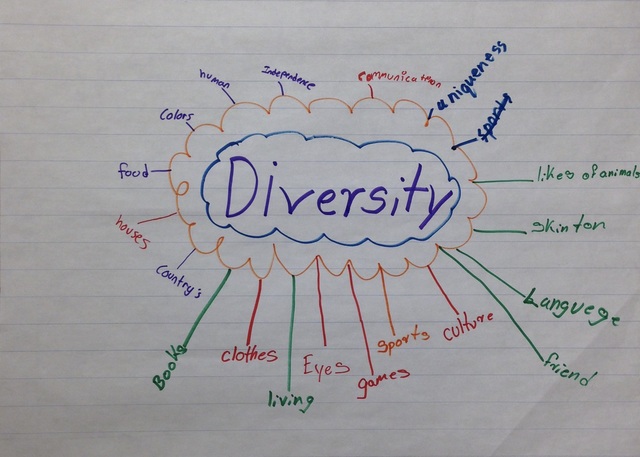 Independence
human
communication
uniqueness
colors
sports
food
Diversity
likes of animals
houses
skinton
country's
Languege
Books
clothes
Eyes
sports
culture
living
games
friend